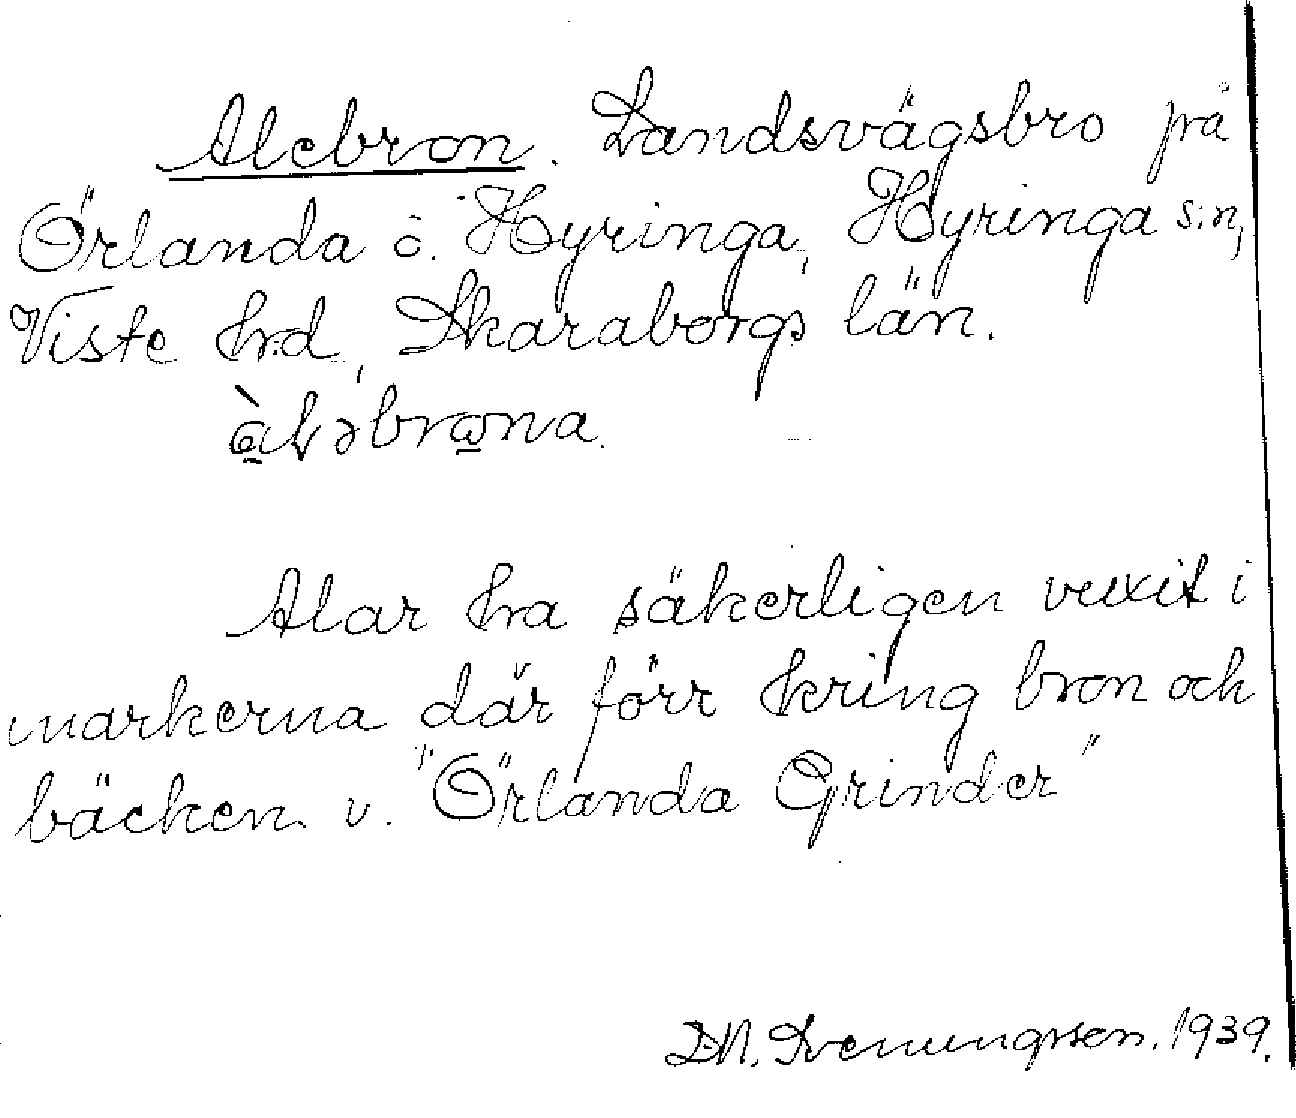 Alebron. Landsvägsbro på
Örlanda ö. Hyringa, Hyringa s:n,
Viste hrd, Skaraborgs län.
àləbrωna.

Alar ha säkerligen vuxit i
markerna där förr kring bron och
bäcken v. "Örlanda Grinder"

D.N. Svenungsson. 1939.